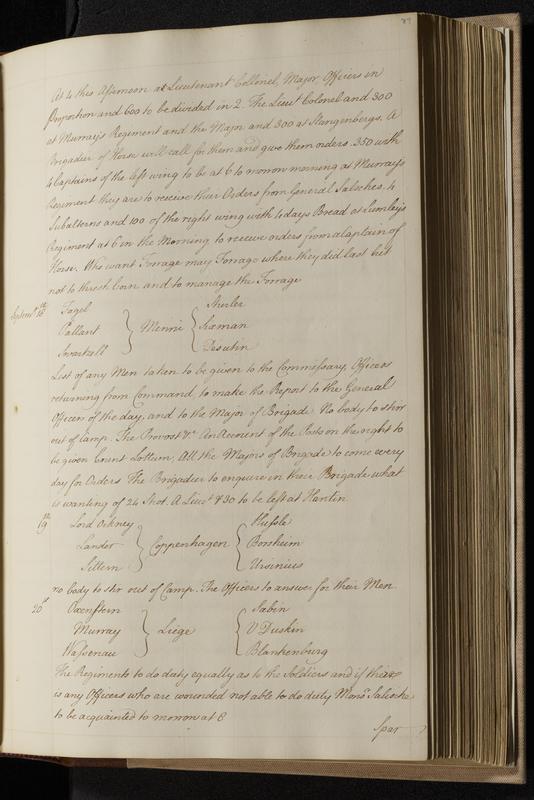 27
At 4 this Afternoon a Lieutenant Collonel, Major, Officers in
proportion and 600 to be divided in 2. The Lieut Colonel and 300
at Murray's Regiment and the Major and 300 at Stangenbergs. A
Brigadier of Horse will call for them and give them orders. 350 with
4 Captains of the left wing to be at 6 to morrow morning at Murrays
Regiment they are to receive their Orders from General Salisches. 4
Subalterns and 100 of the right wing with 4 days Bread at Lumley's
Regiment at 6 in the Morning to receive orders from a Captain of
Horse. Who want Forrage may Forrage where they did last but
not to thresh corn and to manage the Forrage
Septemr. 18th Fagel } Menni { Sturler
Pallant Seman
Swartzell Desutin
List of any Men taken to be given to the Commissary, Officers
returning from Command, to make the Report to the General
Officer of the day, and to the Major of Brigade. No body to stirr
out of Camp. The Provost &c. An Account of the Posts on the right to
be given Count Lottum, All the Majors of Brigade to come every
day for Orders. The Brigadier to enquire in their Brigade what
is wanting of 24 Shot. A Lieut. & 30 to be left at Hantin
19th Lord Orkney } Coppenhagen { Hussle
Lander Bonsheim
Sittern Ursinius
no body to stir out of Camp. The Officers to answer for their Men.
20th Oxenstern } Liege { Sabin
Murray V Duskin
Wassenau Blankenburg
The Regiments to do duty equally as to the Soldiers and if there
is any Officers who are wounded not able to do duty Monsr. Salische
to be acquainted to morrow at 8
Spar